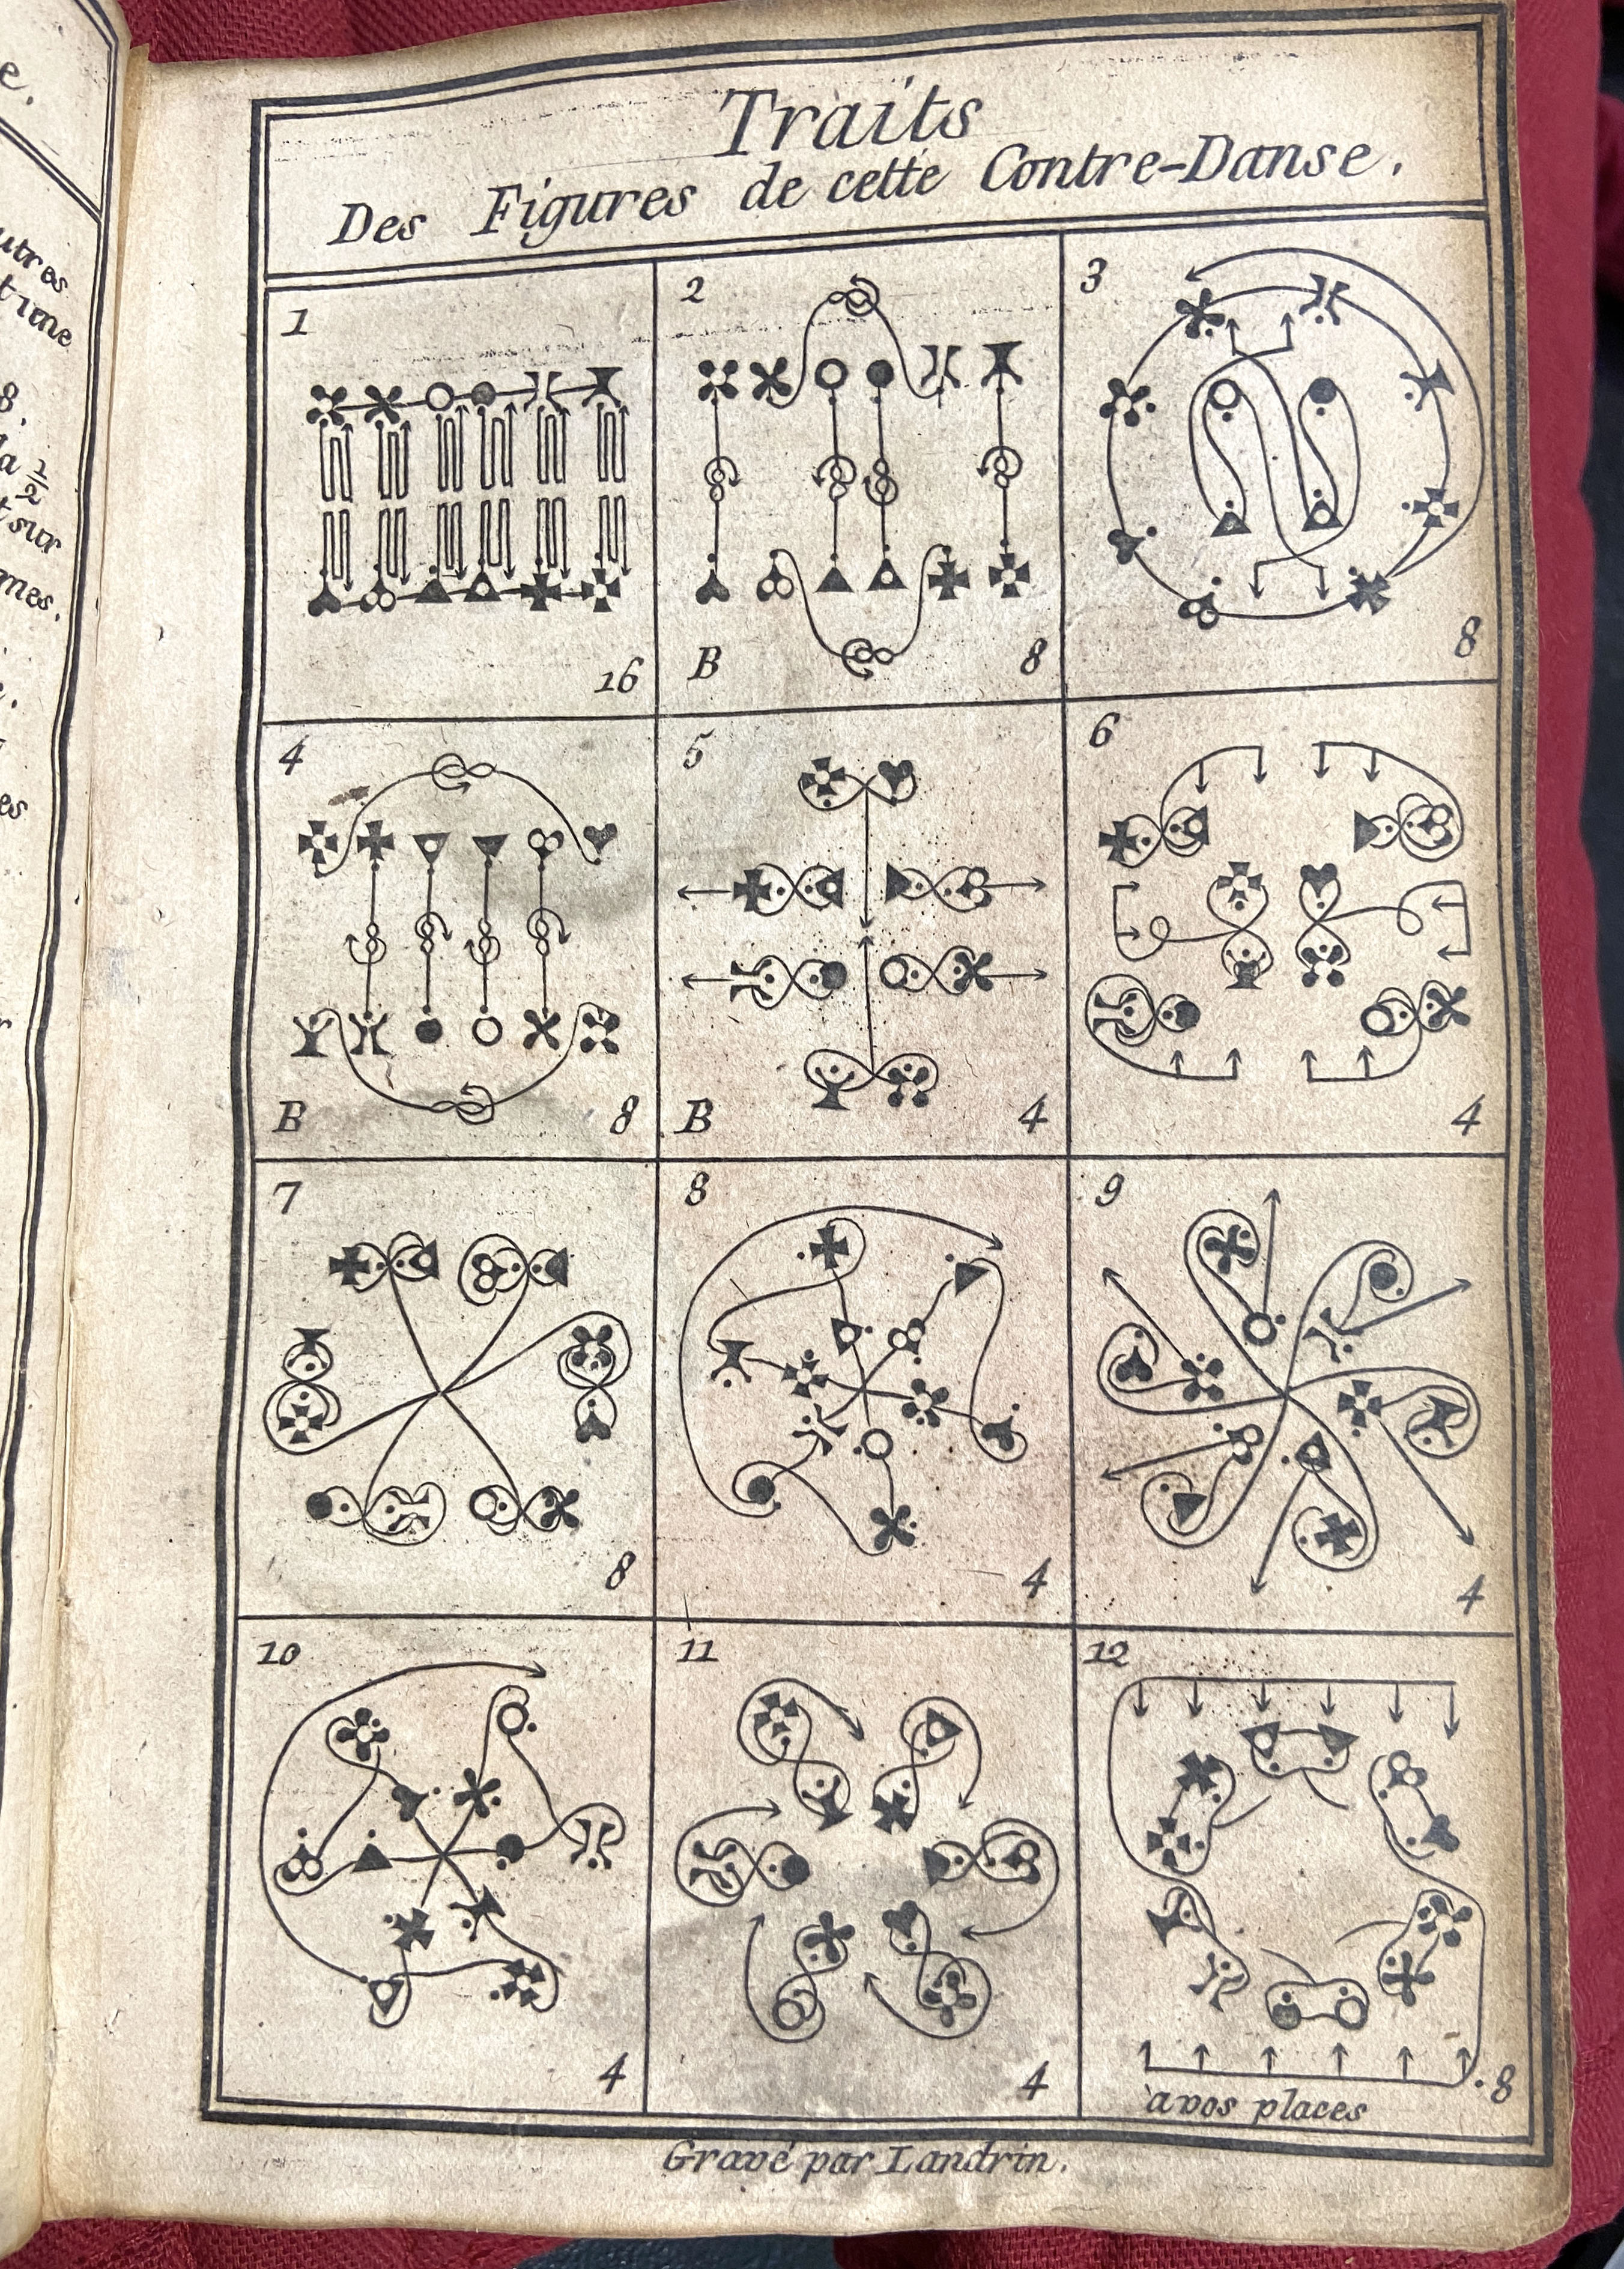 Traits
Des Figures de cette Contre-Danse.
1
16
2
B
8
3
8
4
B
8
5
B
4
6
4
7
8
8
4
9
4
10
4
11
4
12
8
à vos places
Gravé par Landrin.
e.
utres
t une
8.
a 1/2
t sur
gnes.
es
r